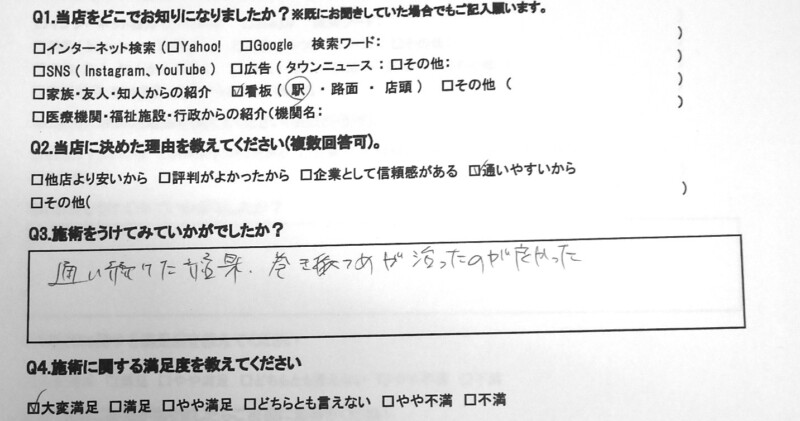 Q1.当店をどこでお知りになりましたか？※既にお聞きしていた場合でもご記入願います。
□インターネット検索（□Yahoo! □Google 検索ワード： ）
□SNS（Instagram、YouTube） □広告（タウンニュース：□その他： ）
□家族・友人・知人からの紹介 ☑看板（駅・路面・店頭） □その他（ ）
□医療機関・福祉施設・行政からの紹介（機関名： ）
Q2.当店に決めた理由を教えてください（複数回答可）。
□他店より安いから □評判がよかったから □企業として信頼感がある ☑通いやすいから
□その他（ ）
Q3.施術をうけてみていかがでしたか？
通い続けた結果、巻き爪つめが治ったのが良かった
Q4.施術に関する満足度を教えてください
☑大変満足 □満足 □やや満足 □どちらとも言えない □やや不満 □不満